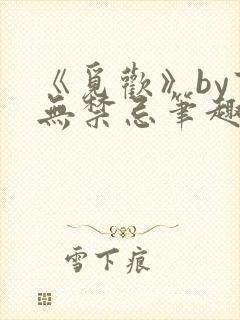 《覓歡》by
無禁忌筆趣
雪下痕